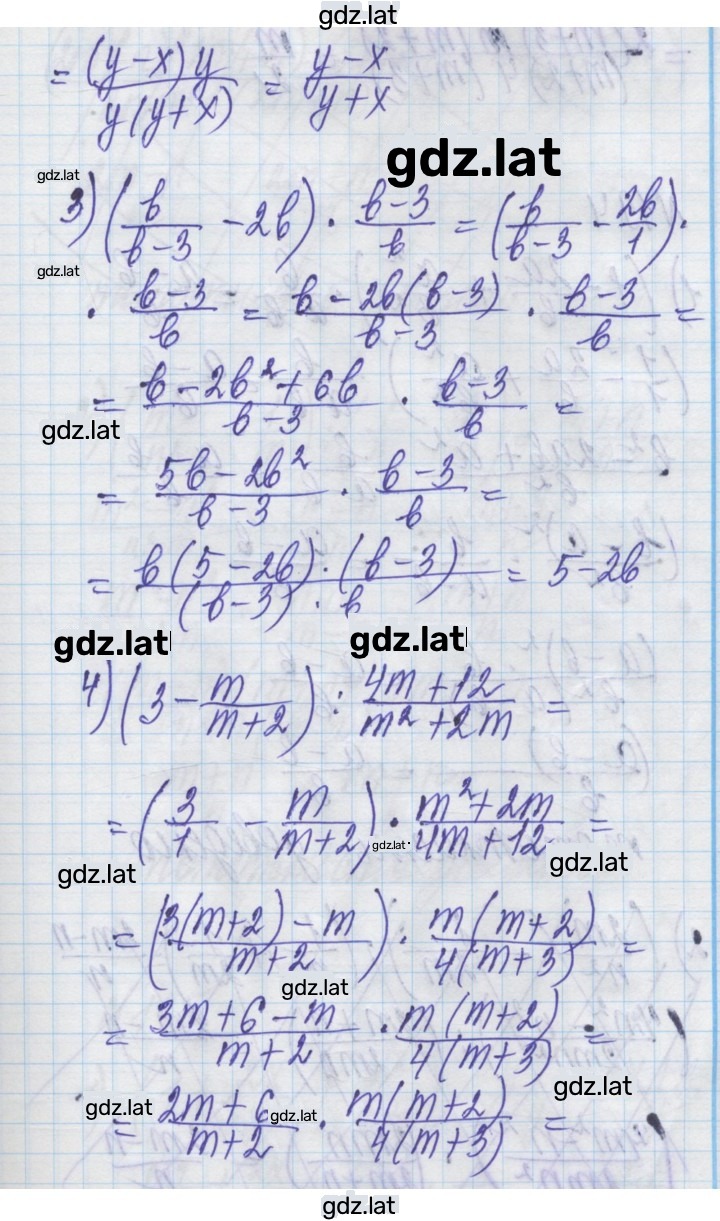 gdz.lat
= (y-x)y / y(y+x) = y-x / y+x
gdz.lat
gdz.lat
3) (b / b-3 - 2b) · b-3 / b = (b / b-3 - 2b / 1) ·
gdz.lat
· b-3 / b = b-2b(b-3) / b-3 · b-3 / b =
= b-2b²+6b / b-3 · b-3 / b =
gdz.lat
= 5b-2b² / b-3 · b-3 / b =
= b(5-2b)·(b-3) / (b-3)·b = 5-2b
gdz.lat gdz.lat
4) (3 - m / m+2) : 4m+12 / m²+2m =
= (3 / 1 - m / m+2) · m²+2m / 4m+12 =
gdz.lat
gdz.lat
gdz.lat
= (3(m+2)-m / m+2) · m(m+2) / 4(m+3) =
gdz.lat
= 3m+6-m / m+2 · m(m+2) / 4(m+3) =
gdz.lat
gdz.lat gdz.lat
= 2m+6 / m+2 · m(m+2) / 4(m+3) =
gdz.lat